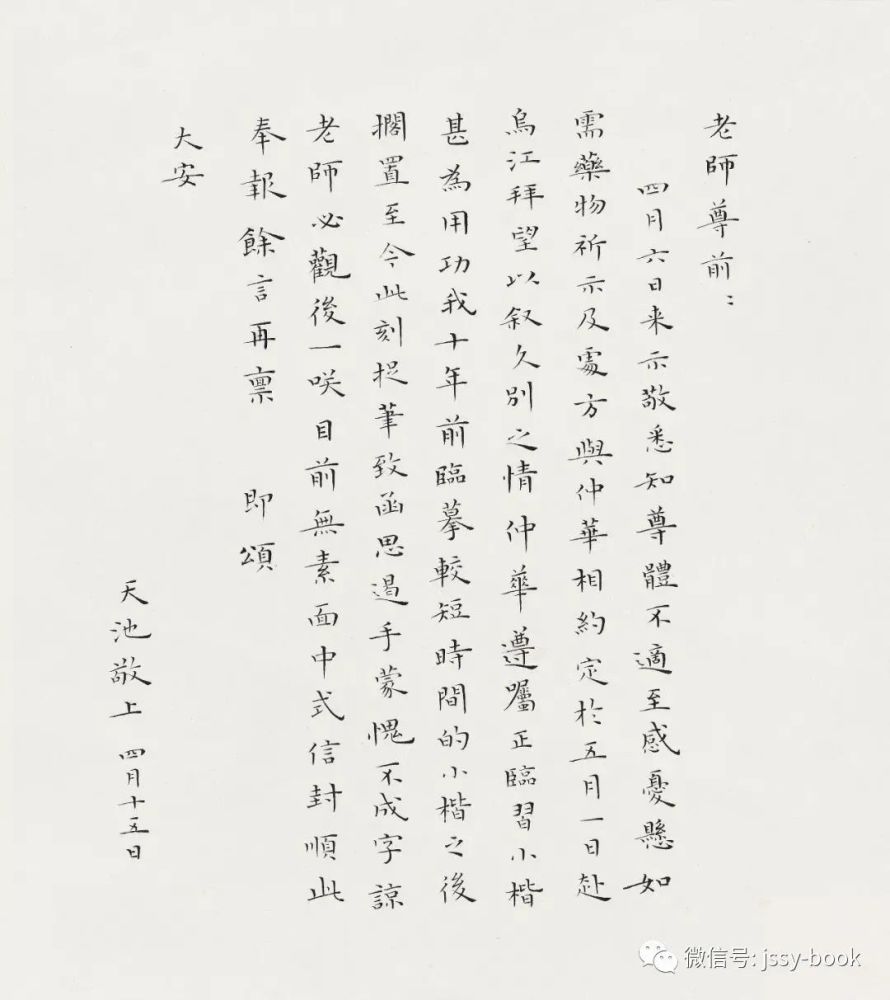 老師尊前：
四月六日来示敬悉知尊體不適至感憂懸如
需藥物祈示及處方與仲華相約定於五月一日赴
烏江拜望以叙久別之情仲華遵囑正臨習小楷
甚為用功我十年前臨摹較短時間的小楷之後
擱置至今此刻捉筆致函思遏手蒙愧不成字諒
老師必觀後一咲目前無素面中式信封順此
奉報餘言再禀 即頌
大安
天池敬上 四月十五日
微信号: jssy-book